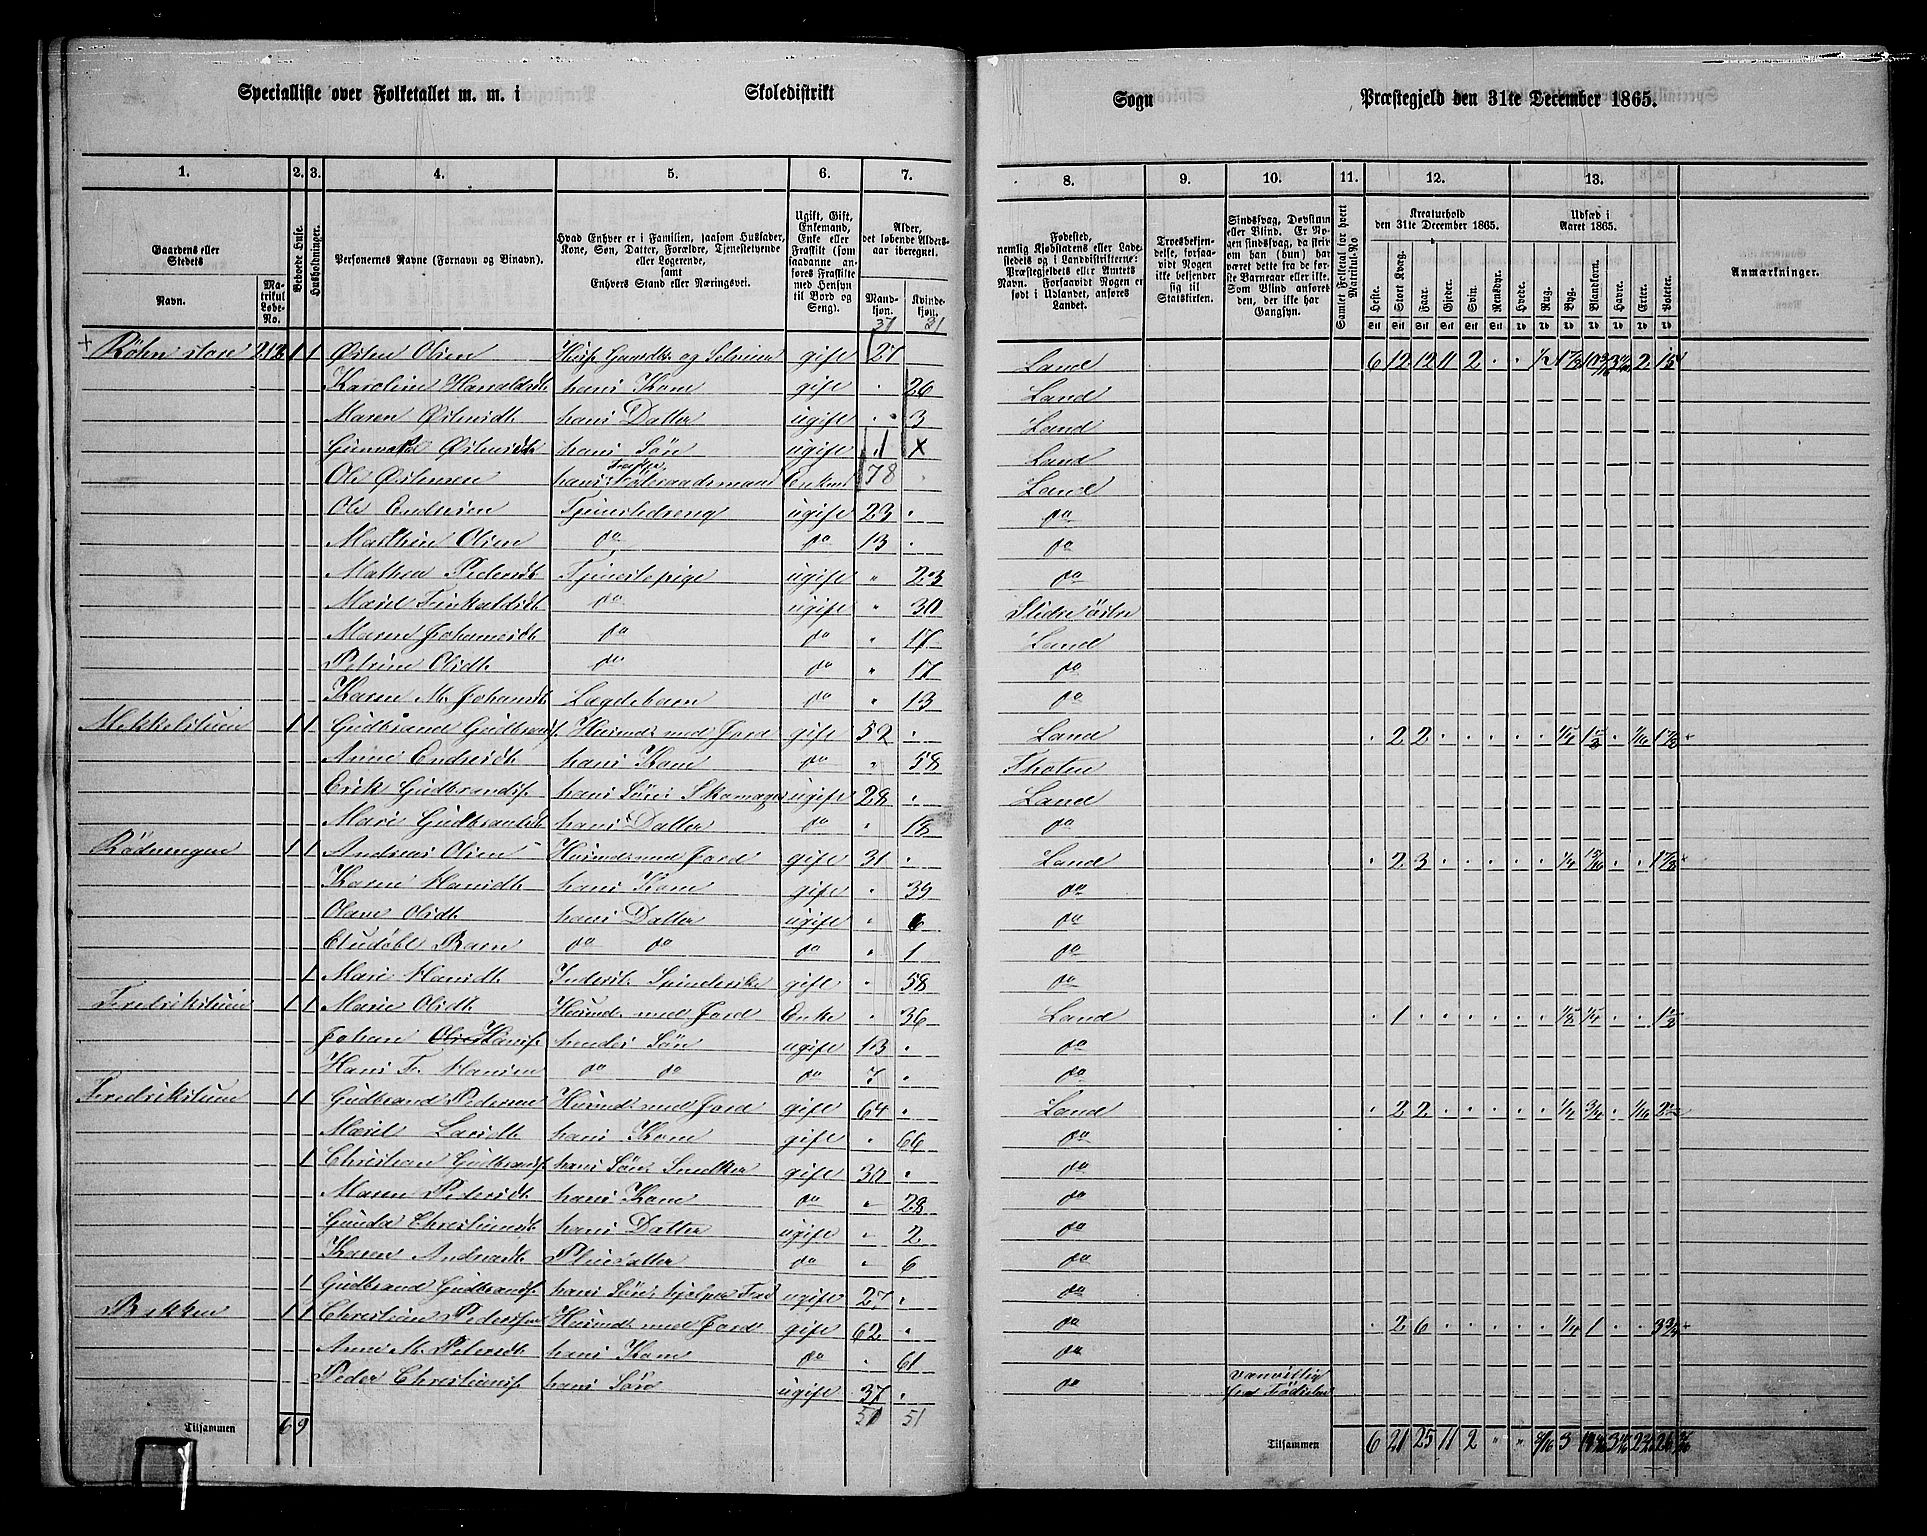 Specialliste over Folketallet m. m. i Skoledistrikt Sogn Præstegjeld den 31te December 1865.
1. 2. 3. 4. 5. 6. 7. 8. 9. 10. 11. 12. 13.
Gaardens eller Stedets
Navn.
Matrikul Løbe-No.
Beboede Huse.
Husholdninger.
Personernes Navne (Fornavn og Binavn).
Hvad Enhver er i Familien, saasom Husfader, Kone, Søn, Datter, Forældre, Tjenestetyende eller Logerende, samt Enhvers Stand eller Næringsvei.
Ugift, Gift, Enkemand, Enke eller Fraskilt (som saadanne anføres Fraskilte med Hensyn til Bord og Seng).
Alder, det løbende Aldersaar iberegnet.
Mandkjøn. Kvindekjøn.
Fødested, nemlig Kjøbstadens eller Ladestedets og i Landdistrikterne: Præstegjeldets eller Amtets Navn. Forsaavidt Nogen er født i Udlandet, anføres Landet.
Troesbekjendelse, forsaavidt Nogen ikke bekjender sig til Statskirken.
Sindssvag, Døvstum eller Blind. Er Nogen sindssvag, da skrives om han (hun) har været dette fra de første Barneaar eller ikke. Som Blind anføres den, der ikke har Gangsyn.
Samlet Folketal for hvert Matrikul-No
Kreaturhold den 31te December 1865.
Heste. Stort Kvæg. Faar. Gjeder. Svin. Rensdyr.
Udsæd i Aaret 1865.
Hvede. Rug. Byg. Blandkorn. Havre. Erter. Poteter.
Anmærkninger.
+ Røhn store 213 1 1 Østen Olsen Husf. Gaardbr. og Selveier gift 27 Land 6 12 12 11 2
Karoline Haraldsdt. hans Kone gift 26 Land
Maren Østensdt. hans Datter ugift 3 Land
Østensdt. hans Søn ugift 1 x Land
Ole Østensen hans Fader, Føderaadsmand Enkem. 78 Land
Ole Endresen Tjenestedreng ugift 23 do
Mathias Olsen do do 13 do
Mathea Pedersdt. Tjenestepige ugift 23 do
Marit do ugift 30 Slidre østre
Maren Johannesdt. do do 17 Land
Petrine Olsdt. do do 17 do
Karen M. Johansdt. Lægdebarn do 13 do
Mekkelstuen 1 1 Gudbrand Gudbrands. Husmd. med Jord gift 52 Land 2 2
Anne Endresdt. hans Kone do 58 Thoten
Erik Gudbrands. hans Søn Skomager ugift 28 Land
Mari Gudbrandsdt. hans Datter do 18 do
Rødningen 1 1 Andreas Olsen Husmd. med Jord gift 31 Land 2 3
Karen Hansdt. hans Kone gift 39 do
Olave Olsdt. hans Datter ugift 6 do
Et udøbt Barn do do do 1 do
1 Mari Hansdt. Inderst. Spinderske gift 58 do
Fredrikstuen 1 1 Marie Olsdt. Husmd. med Jord Enke 36 Land 1
Johan Hans. hendes Søn ugift 13 do
Hans Fr. Hansen do do do 7 do
Fredrikstuen 1 1 Gudbrand Pedersen Husmd. med Jord gift 64 Land 2 2
Marit Larsdt. hans Kone gift 66 do
1 Christian Gudbrands. hans Søn Snedker gift 30 do
Maren Pedersdt. hans Kone do 28 do
Gunda Christiansdt. hans Datter ugift 2 do
Karen Andreasdt. Pleiedatter do 6 do
1 Gudbrand Gudbrands. hans Søn hjelper Fad. ugift 27 do
Bekken 1 1 Christian Pedersen Husmd. med Jord gift 62 do 2 6 1/4 1 3 3/4
Anne M. Petersdt. hans Kone do 61 do
Peder Christians. hans Søn ugift 37 do vanvittig fra Fødselen
51 51
Tilsammen 6 9 Tilsammen 6 21 25 11 2